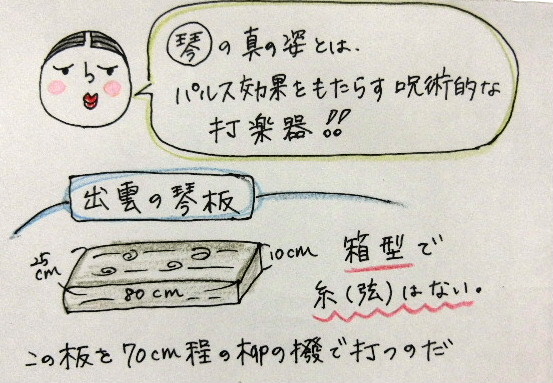 琴の真の姿とは、
パルス効果をもたらす呪術的な
打楽器!!
出雲の琴板
25cm
10cm
80cm
箱型で
糸(弦)はない。
この板を70cm程の柳の撥で打つのだ